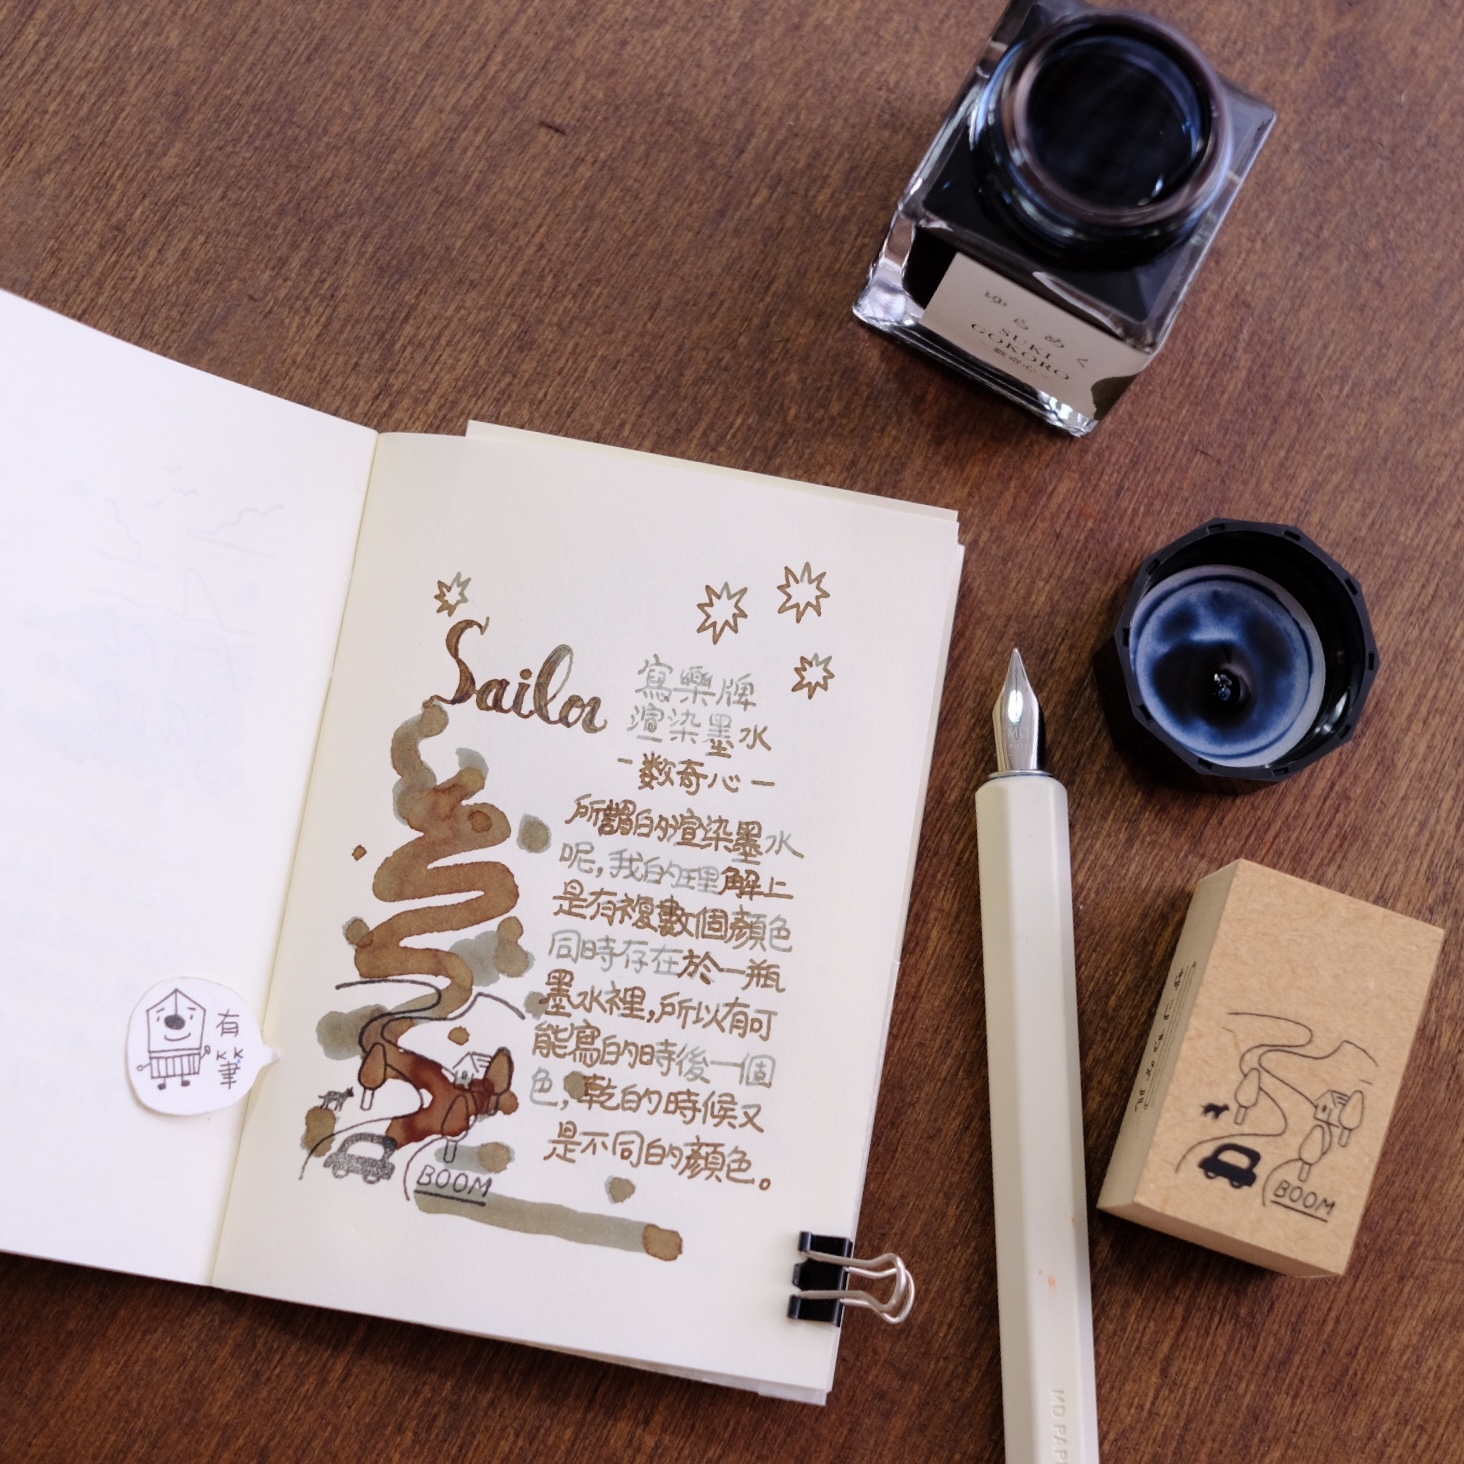 ゆらめく
SUKI
GOKORO
Sailor
寫樂牌
渲染墨水
-数奇心-
所謂的渲染墨水
呢,我的理解上
是有複數個顏色
同時存在於一瓶
墨水裡,所以有可
能寫的時後一個
色,乾的時候又
是不同的顏色。
BOOM
有
KK
筆
BOOM
MD PAP